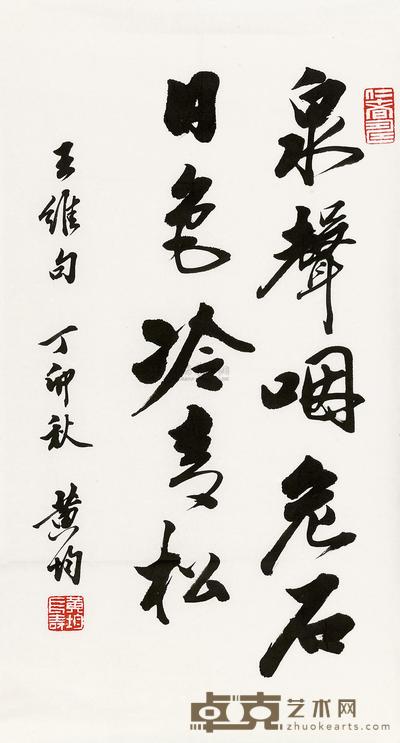 泉聲咽危石
日色冷青松
王維句 丁卯秋 黄均
黄均長壽
卓克艺术网
zhuokearts.com